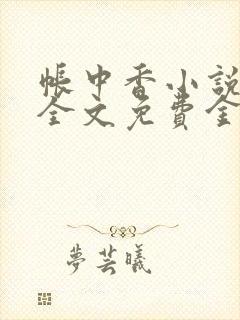 帳中香小說
全文免費全
夢芸曦